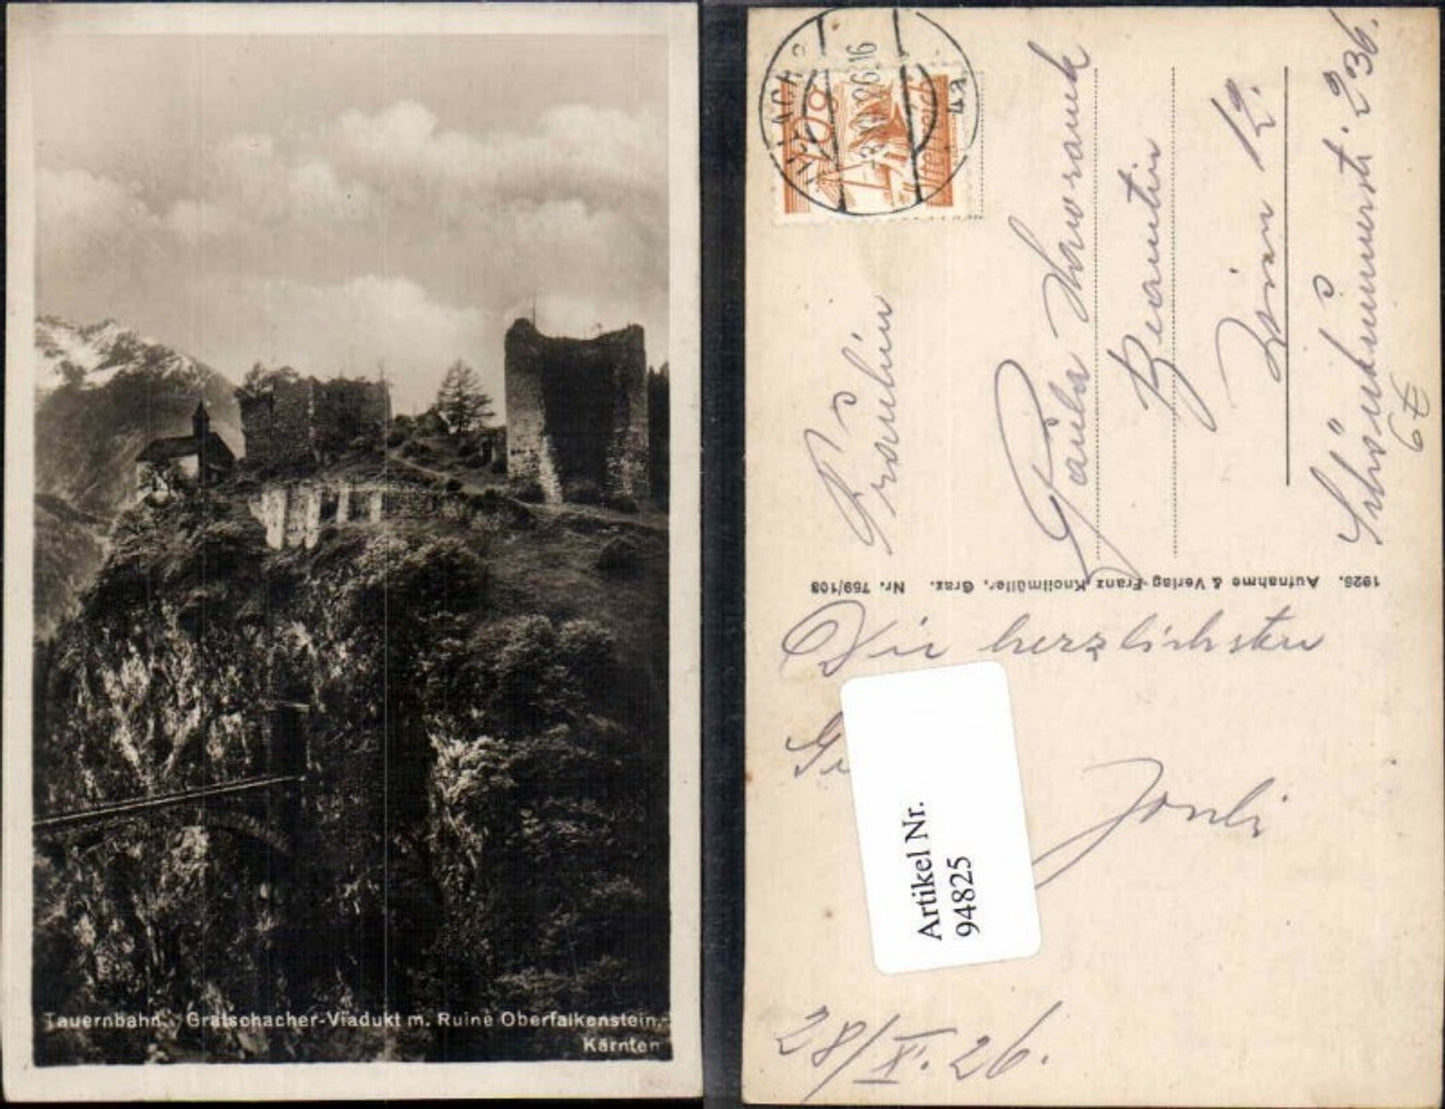 Tauernbahn. Gratschacher-Viadukt m. Ruine Oberfalkenstein.-
Kärnten
VILLACH
Österreich
Fräulein
Paula Hawranek
Beamtin
Wien 12.
Schönbrunnerstr. 236.
6€
1926. Aufnahme & Verlag Franz Knollmüller, Graz. Nr. 759/108
Die herzlichsten
Artikel Nr.
94825
28/XI. 26.